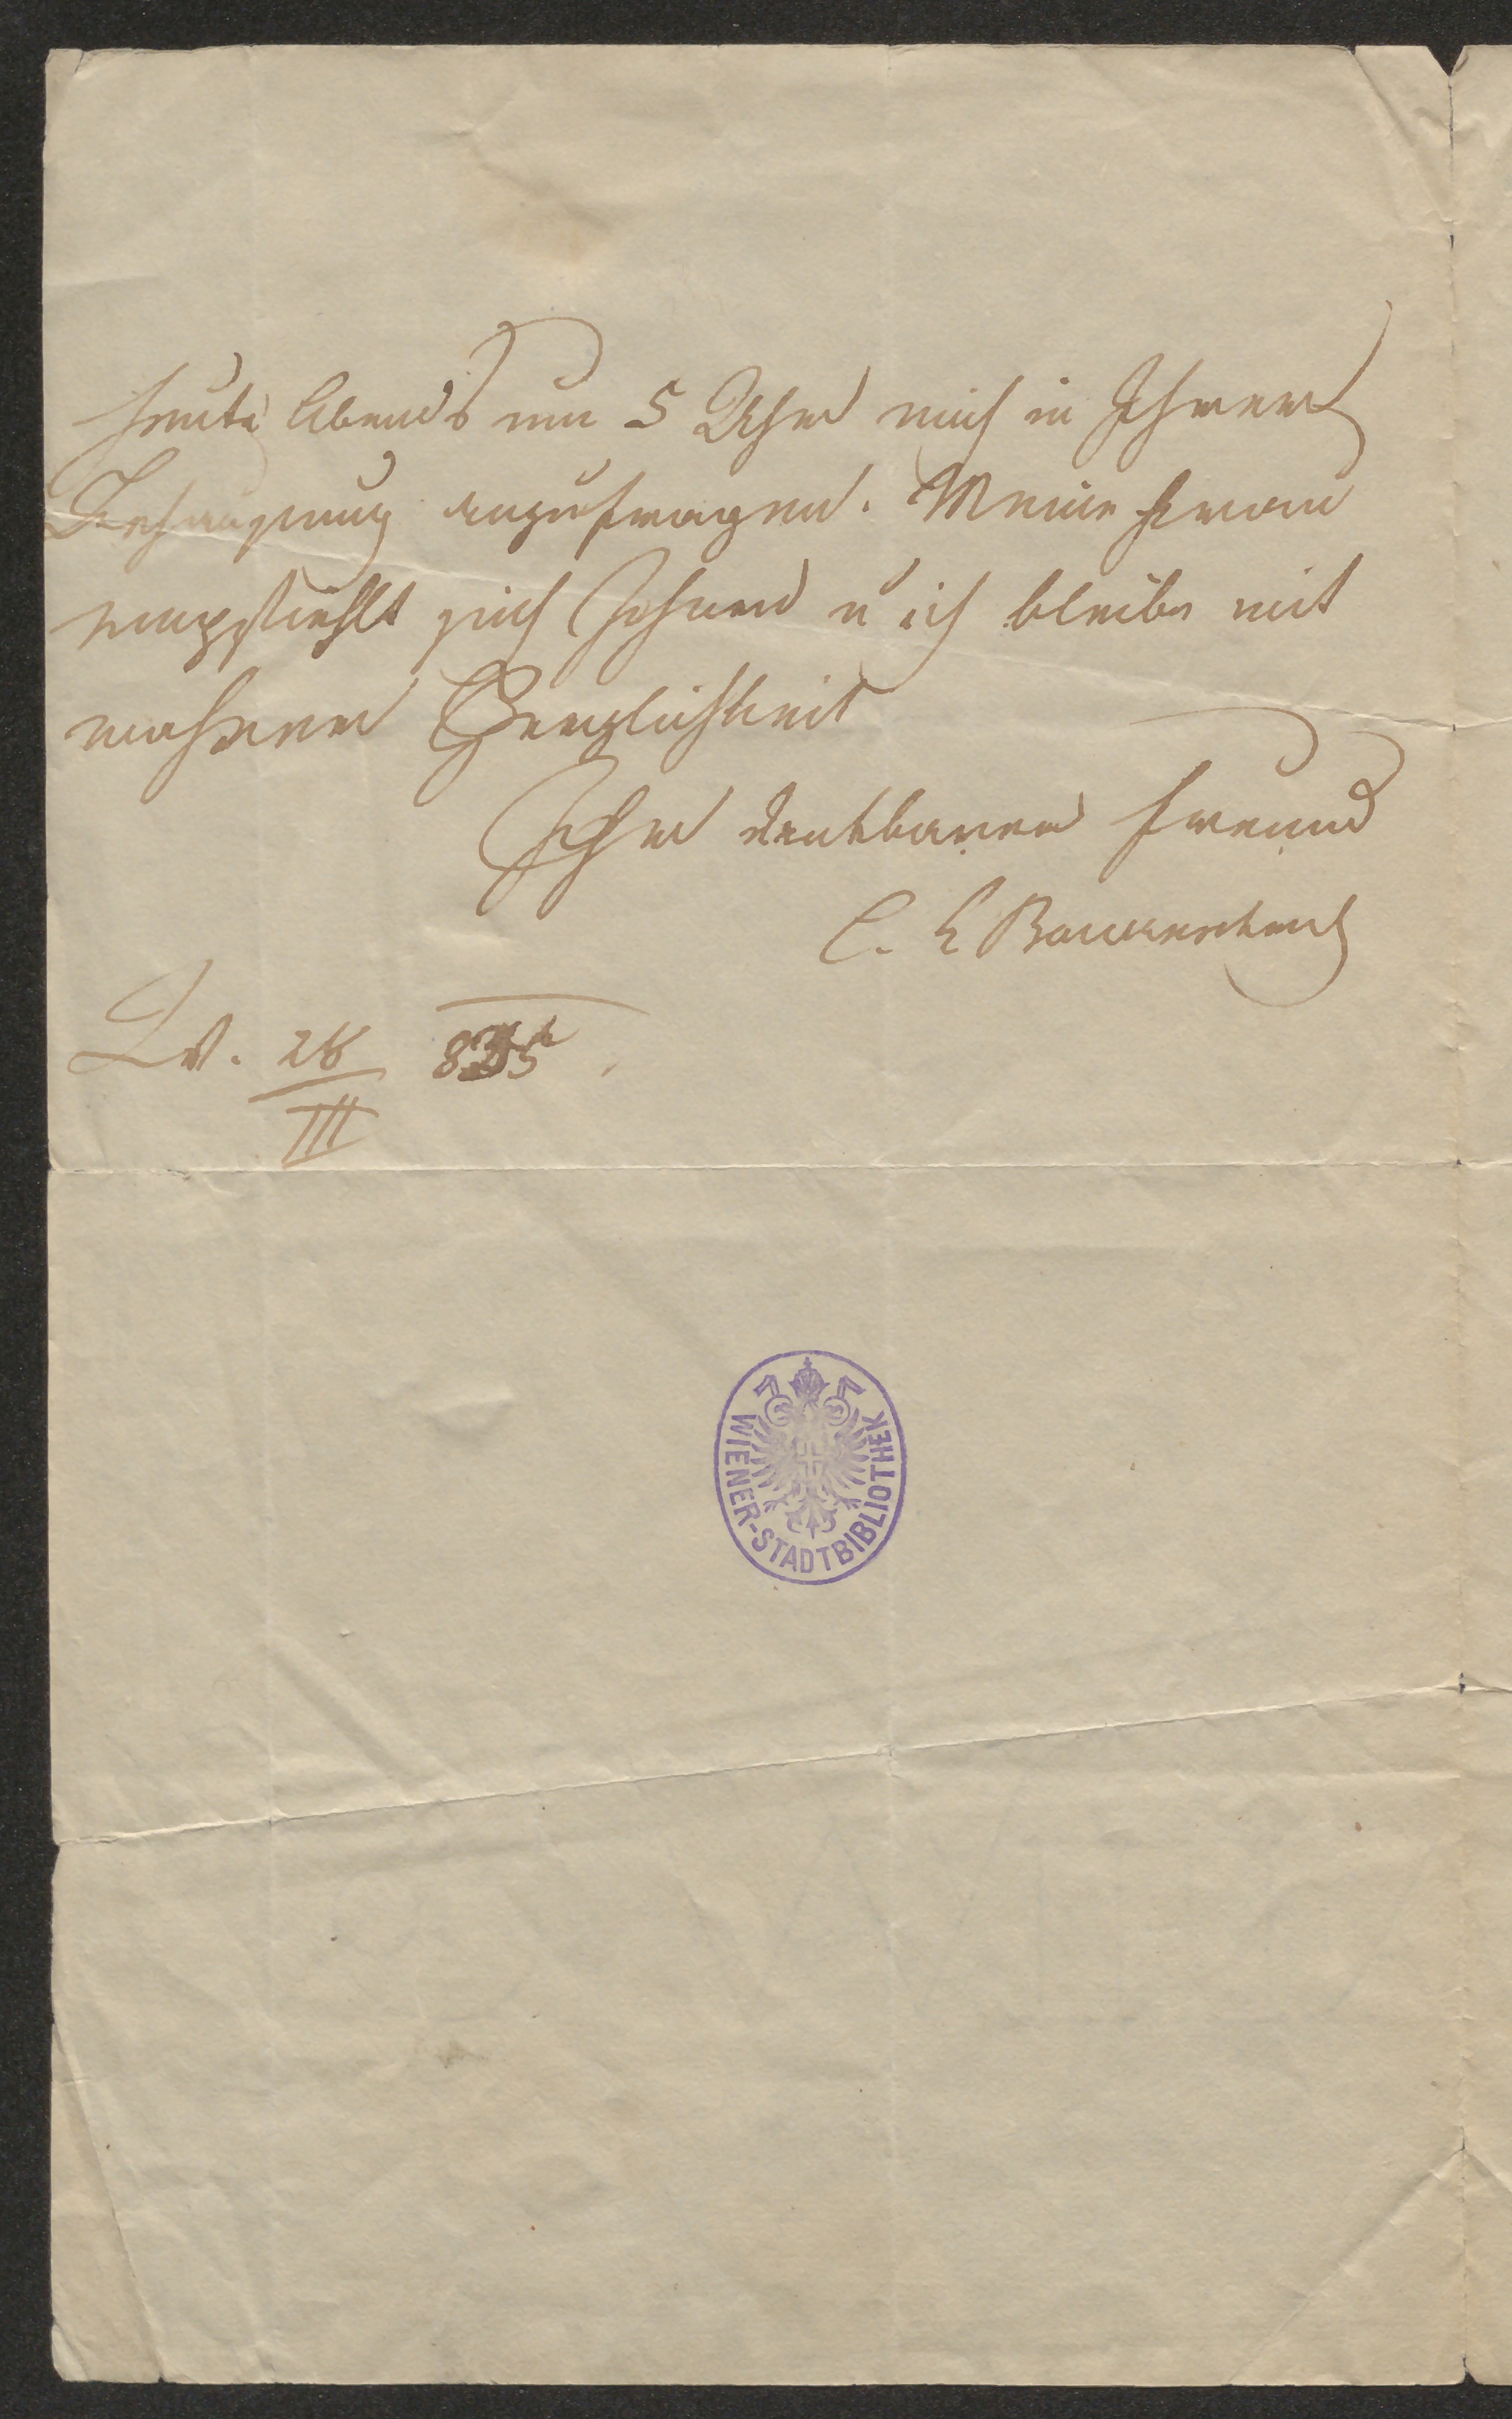 heute Abends um 5 Uhr mich in Ihrer
Behausung anzufragen. Meine Frau
empfiehlt sich Ihnen u ich bleibe mit
wahrer Herzlichkeit
Ihr dankbarer Freund
C. E
28 835.
III
WIENER-STADTBIBLIOTHEK